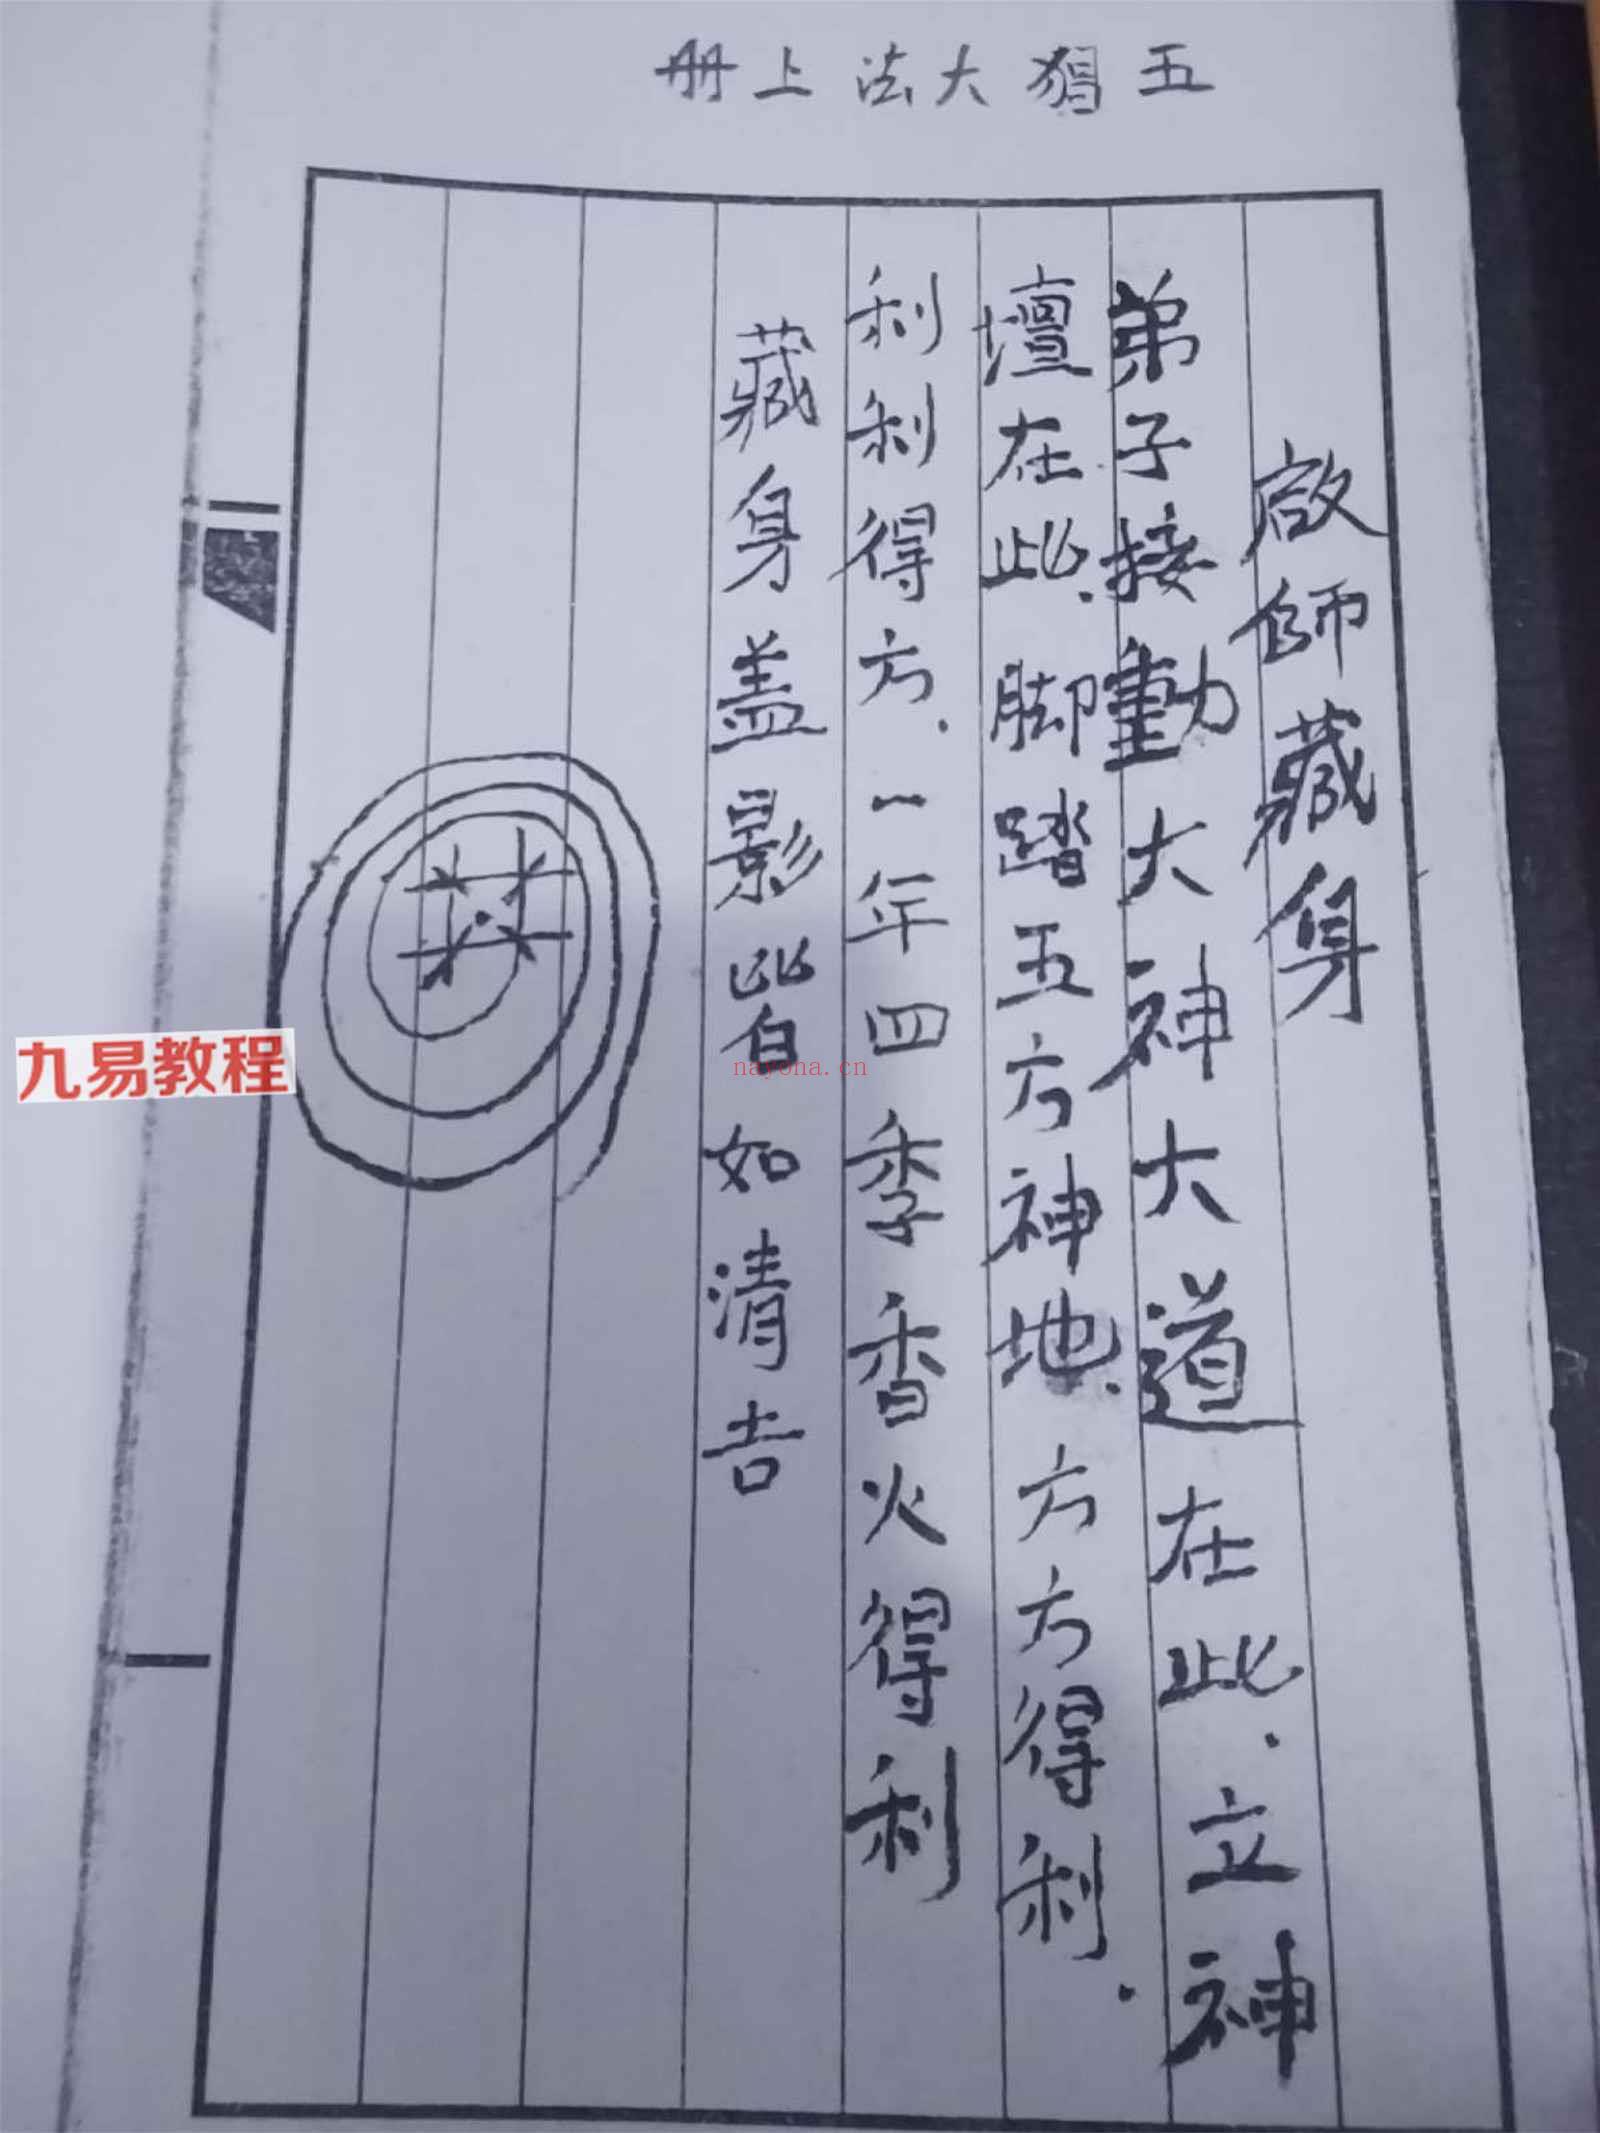 五猖大法上册
啟師藏身
弟子接動大神大道在此.立神
壇在此.脚踏五方神地.方方得利.
利利得方.一年四季香火得利
藏身盖影皆如清吉
九易教程
nayona.cn